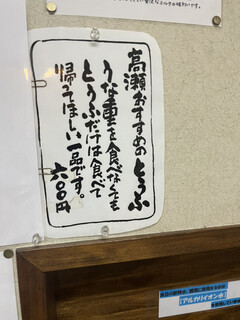 高瀬おすすめのとうふ
うな重を食べなくても
とうふだけは食べて
帰ってほしい一品です。
六〇〇円
『アルカリイオン水』